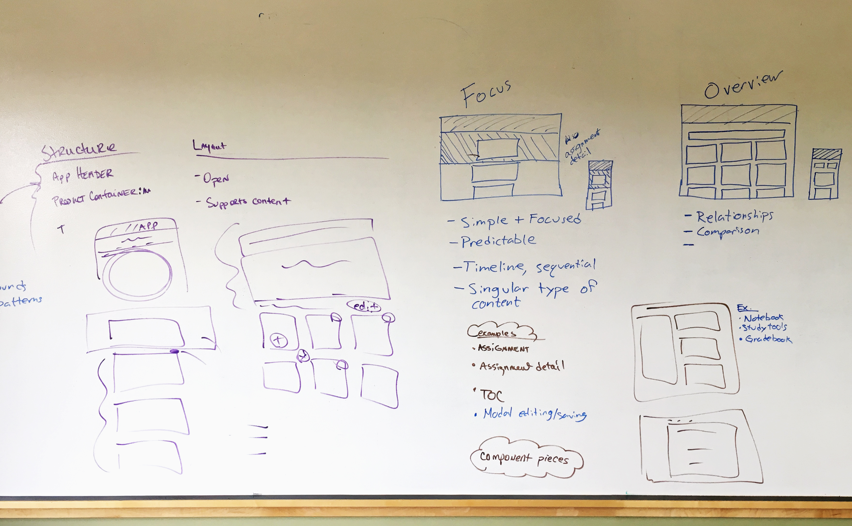 Structure
App Header
Product Container:
T
//APP
Layout
- Open
- Supports content
edit
+
patterns
Focus
No
assignment
detail
- Simple + Focused
- Predictable
- Timeline, sequential
- Singular type of
content
examples
• Assignment
• Assignment detail
• TOC
• Modal editing/saving
component pieces
Overview
- Relationships
- Comparison
-
Ex.
• Notebook
• Study tools
• Gradebook